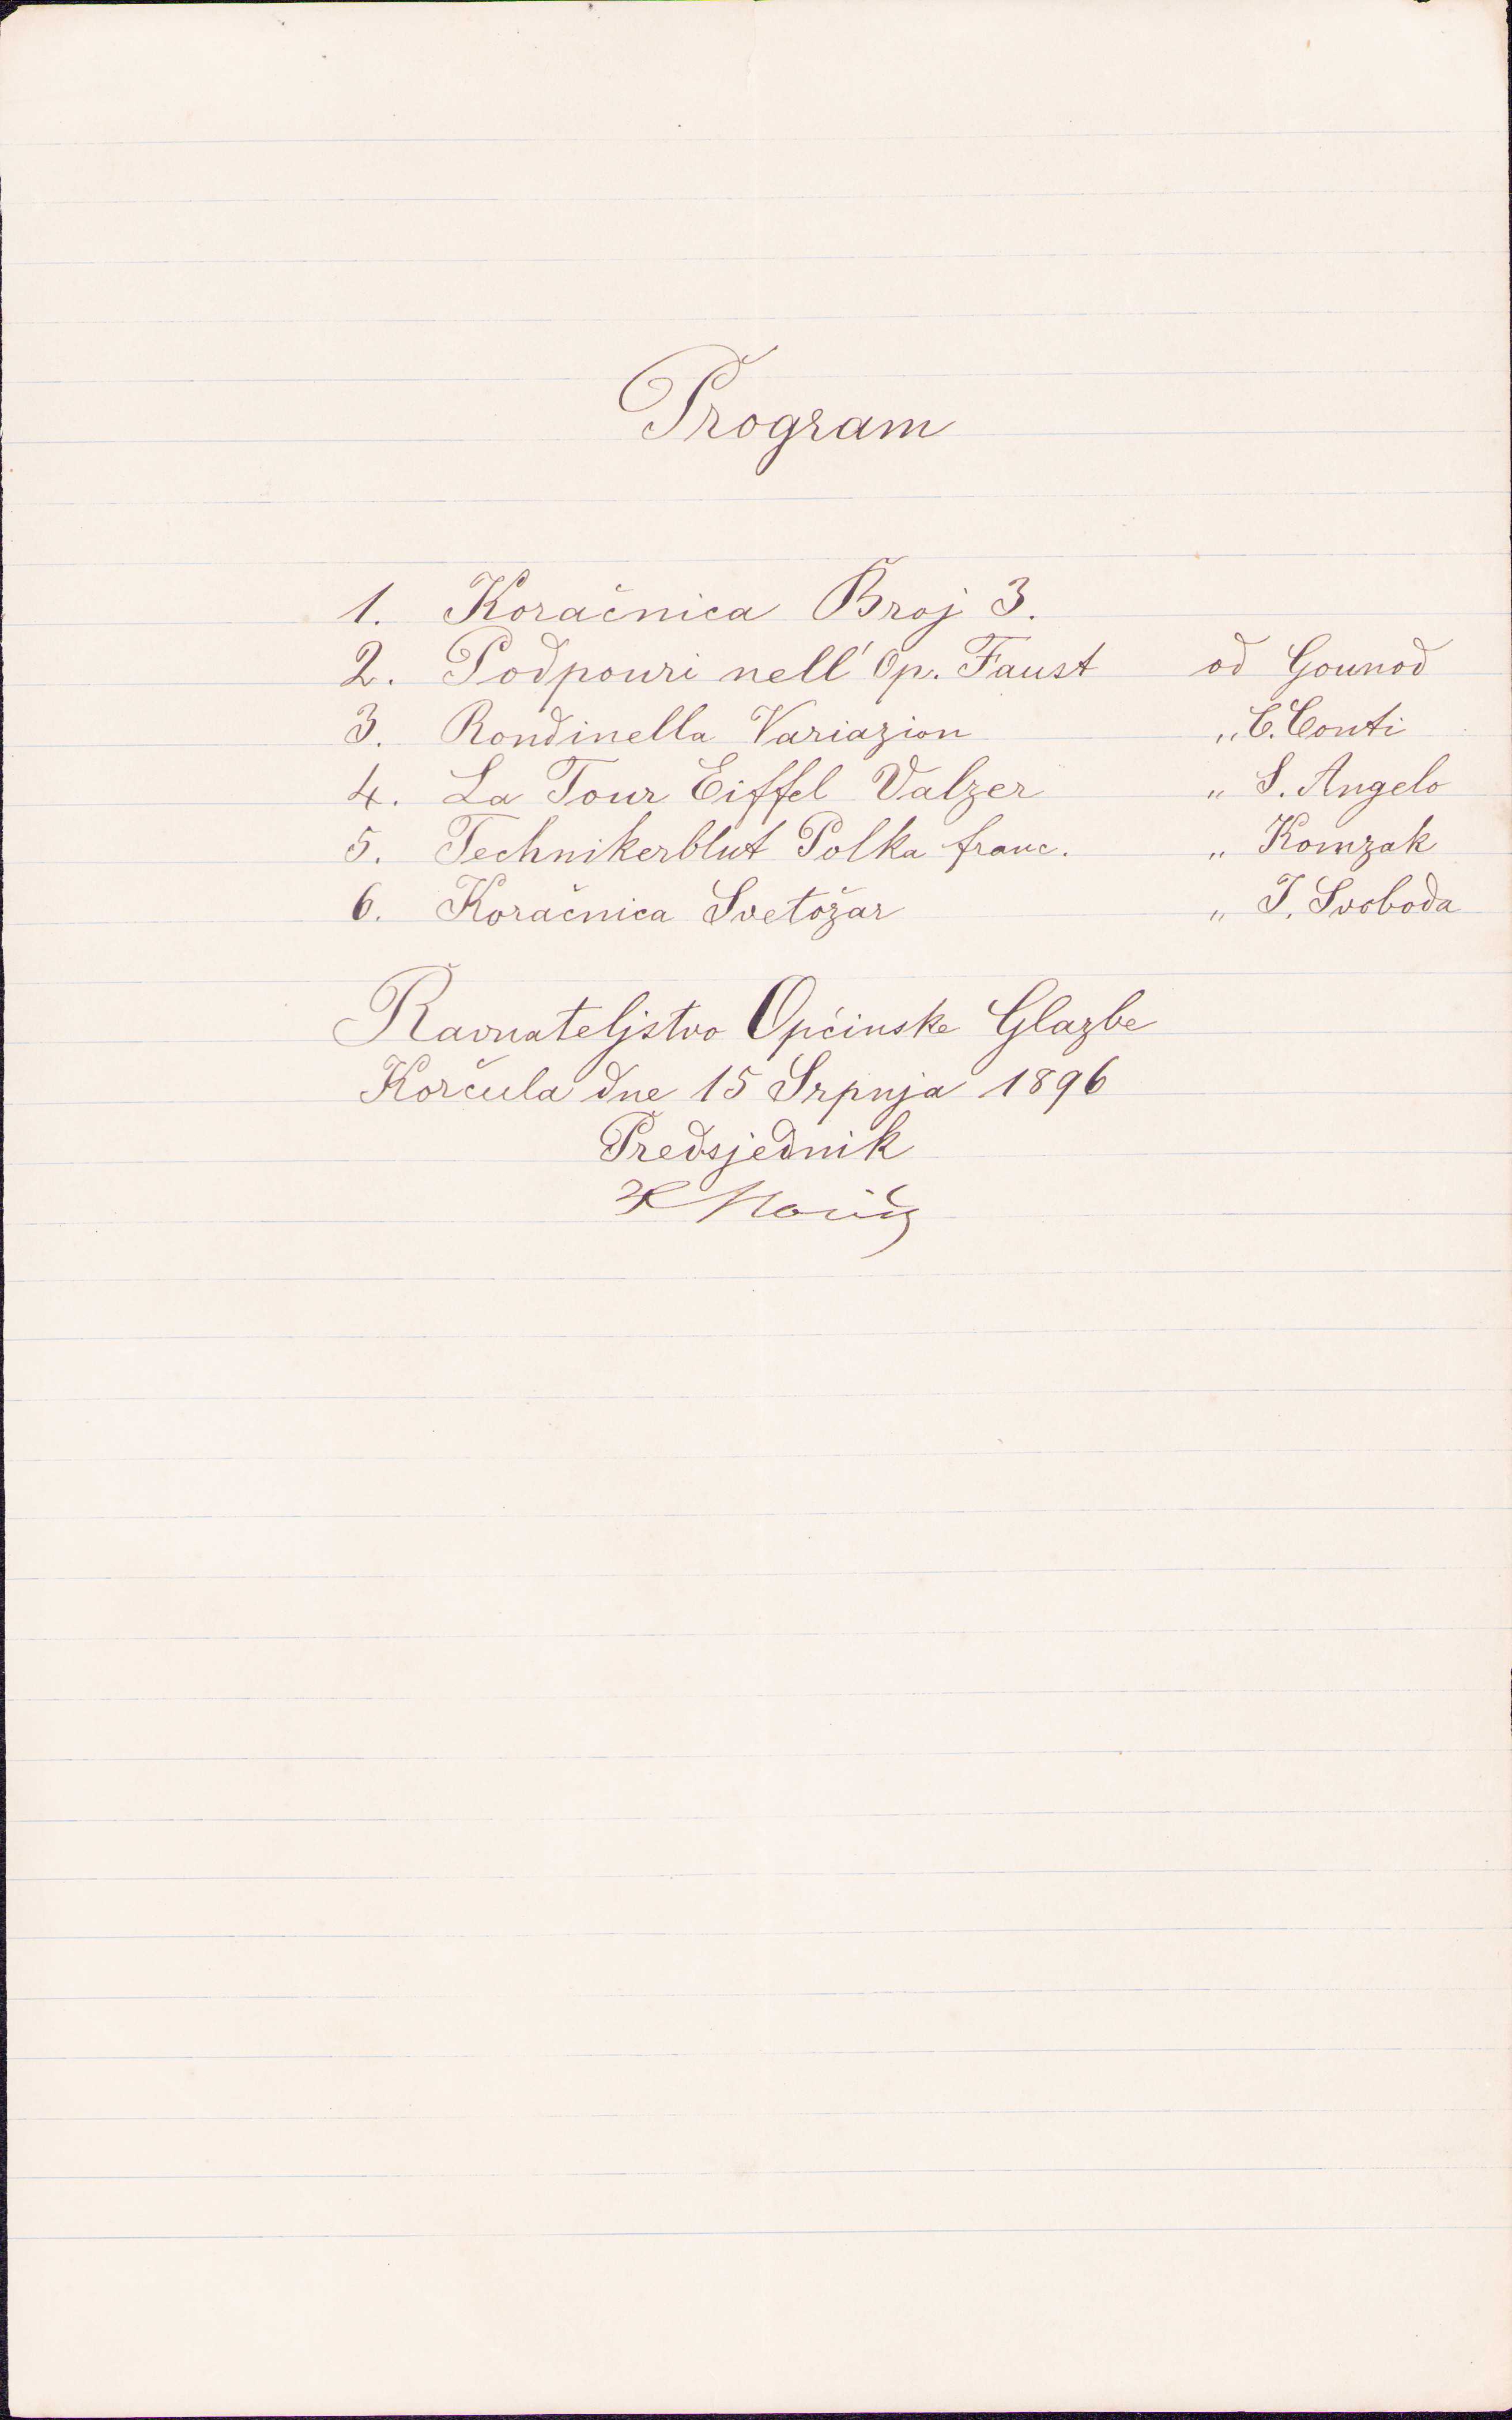 Program
1. Koračnica Broj 3.
2. Podpouri nell' Op. Faust od Gounod
3. Rondinella Variazion „ C. Conti
4. La Tour Eiffel Valzer „ S. Angelo
5. Technikerblut Polka franc. „ Komzak
6. Koračnica Svetožar „ J. Svoboda
Ravnateljstvo Općinske Glazbe
Korčula dne 15 Srpnja 1896
Predsjednik